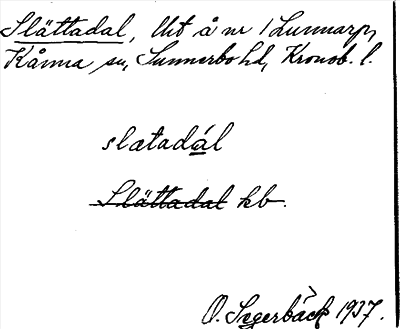 Slättadal, Ut å nr 1 Lunnarp,
Kånna sn, Sunnerbo hd, Kronob. l.
slætadál
Slättadal kb.
O. Segerbäck 1937.